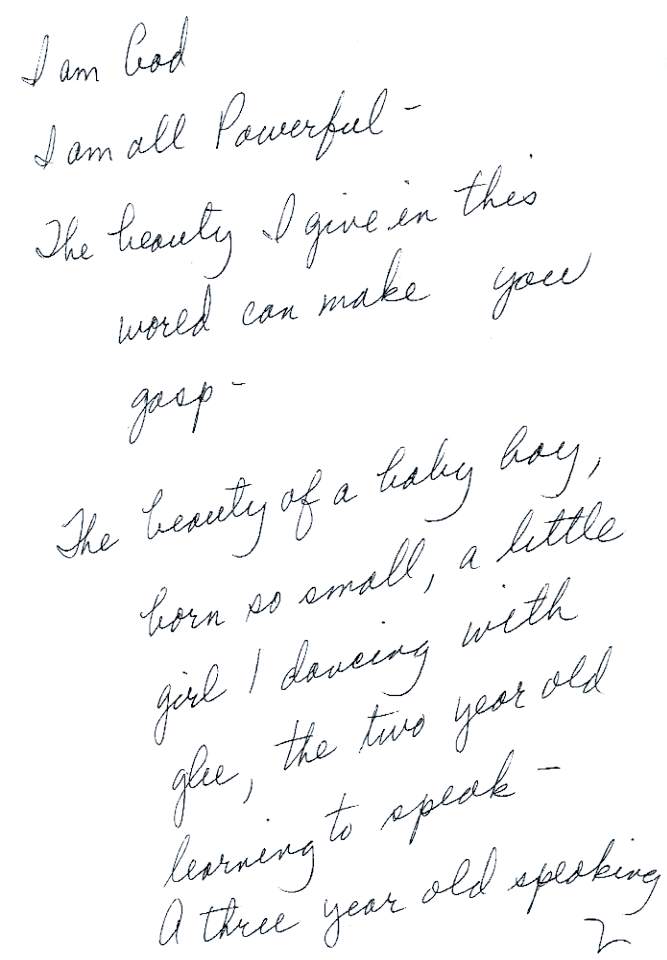 I am God
I am all Powerful -
The beauty I give in this
world can make you
gasp -
The beauty of a baby boy,
born so small, a little
girl 1 dancing with
glee, the two year old
learning to speak -
A three year old speaking
2